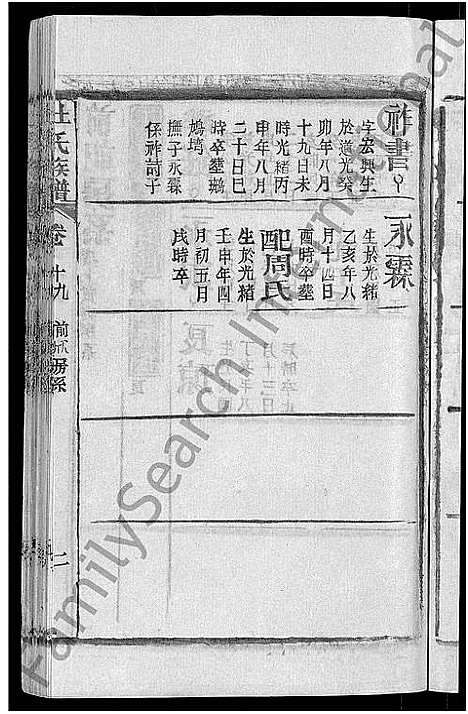 祚書
字宏興生
於道光癸
卯年八月
十九日未
時光緒丙
申年八月
二十日巳
時卒塟鷓
鴣塆
撫子永霖
係祚詩子
永霖
生於光緒
乙亥年八
月十四日
酉時卒塟
配周氏
生於光緒
壬申年四
月初五月
戌時卒
杜氏族譜
卷十九
二
FamilySearch International